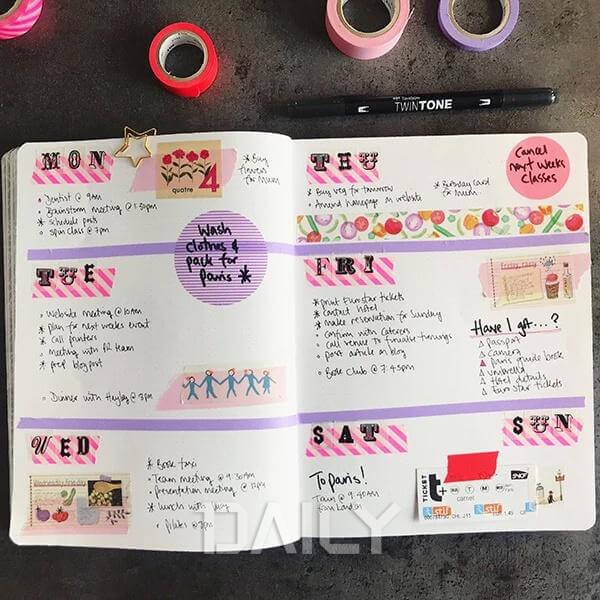 TWINTONE
MON
quatre 4
* Buy
flowers
for Mum
Dentist @ 9am
Brainstorm meeting @ 1:30pm
* Schedule posts
Spin class @ 7pm
Wash
clothes &
pack for
Paris *
TUE
Website meeting @ 10am
* plan for next weeks event
* Call printers
meeting with PR team
* prep blog post
Dinner with Hayley @ 8pm
WED
* Book taxi
Team meeting @ 9:30am
Presentation meeting @ 12pm
* lunch with Lucy
Pilates @ 7pm
THU
* Buy veg for tomorrow
* Amend homepage on website
* Birthday card
for Mum
Cancel
next weeks
classes
FRI
* print Eurostar tickets
* Contact hotel
* make reservation for Sunday
Confirm with caterers
Call venue to finalise timings
post article on blog
Book Club @ 7:45pm
Have I got...?
passport
Camera
Paris guide book
umbrella
Hotel details
Eurostar tickets
SAT
SUN
To Paris!
Train @ 9:40am
from London
TICKET
t+
SNCF
stif
stif
DAILY